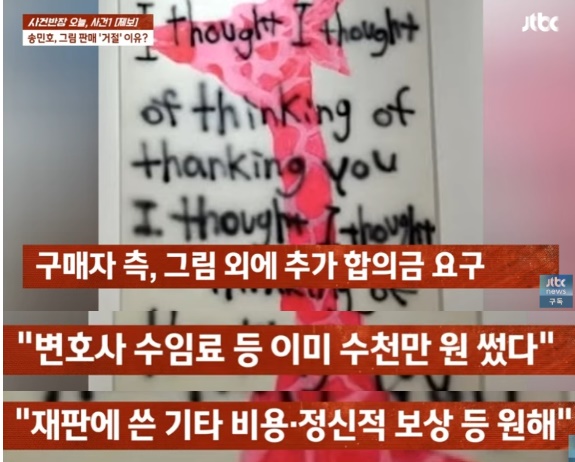 사건반장 오늘, 사건1 [제보]
송민호, 그림 판매 '거절' 이유?
jtbc
I thought I thought
of thinking of
thanking you
I thought I thought
구매자 측, 그림 외에 추가 합의금 요구
jtbc
news
구독
thinking of
"변호사 수임료 등 이미 수천만 원 썼다"
"재판에 쓴 기타 비용·정신적 보상 등 원해"